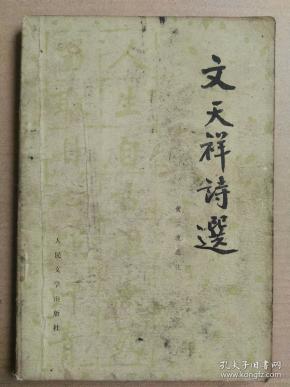 文天祥詩選
黄兰波选注
人民文学出版社
人生自
孔夫子旧书网